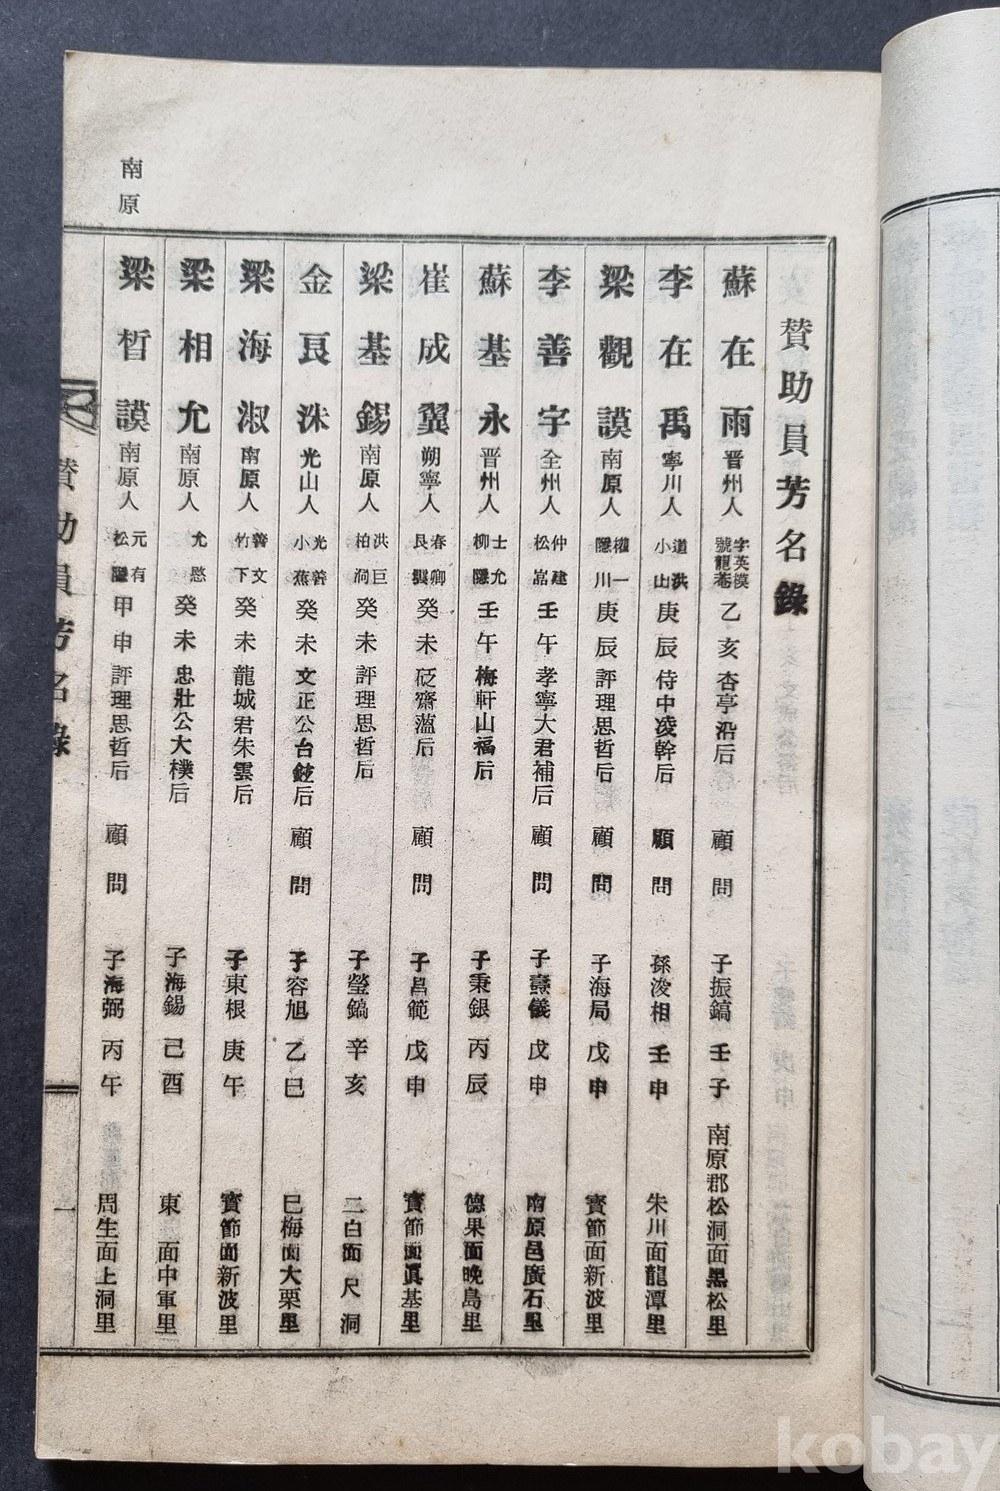 南原
贊助員芳名錄
蘇在雨 晋州人 字英漠 號龍菴 乙亥 杏亭沿后 顧問 子振鎬 壬子 南原郡松洞面黑松里
李在禹 寧川人 道洪 小山 庚辰 侍中凌幹后 顧問 孫浚相 壬申 朱川面龍潭里
梁觀謨 南原人 權一 隱川 庚辰 評理思哲后 顧問 子海局 戊申 寳節面新波里
李善宇 全州人 仲建 松嵓 壬午 孝寧大君補后 顧問 子壽儀 戊申 南原邑廣石里
蘇基永 晋州人 士允 柳隱 壬午 梅軒山福后 子秉銀 丙辰 德果面晚島里
崔成翼 朔寧人 春卿 艮 癸未 砭齋薀后 顧問 子昌範 戊申 寳節面眞基里
梁基錫 南原人 洪巨 柏澗 癸未 評理思哲后 子瑩鎬 辛亥 二白面尺洞
金良洙 光山人 光善 小蕉 癸未 文正公台鉉后 顧問 子容旭 乙巳 巳梅面大栗里
梁海淑 南原人 善文 竹下 癸未 龍城君朱雲后 子東根 庚午 寳節面新波里
梁相允 南原人 允愍 癸未 忠壯公大樸后 子海錫 己酉 東面中軍里
梁晳謨 南原人 元有 松隱 甲申 評理思哲后 顧問 子海弼 丙午 周生面上洞里
贊助員芳名錄
一
kobay